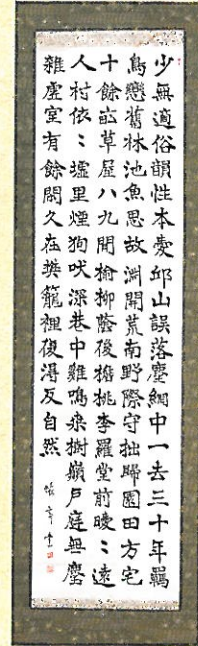 少無適俗韻性本愛邱山誤落塵網中一去三十年羈
鳥戀舊林池魚思故淵開荒南野際守拙歸園田方宅
十餘畝草屋八九間榆柳蔭後檐桃李羅堂前曖〻遠
人村依〻墟里煙狗吠深巷中雞鳴桑樹巔戶庭無塵
雜虛室有餘閒久在樊籠裡復得反自然